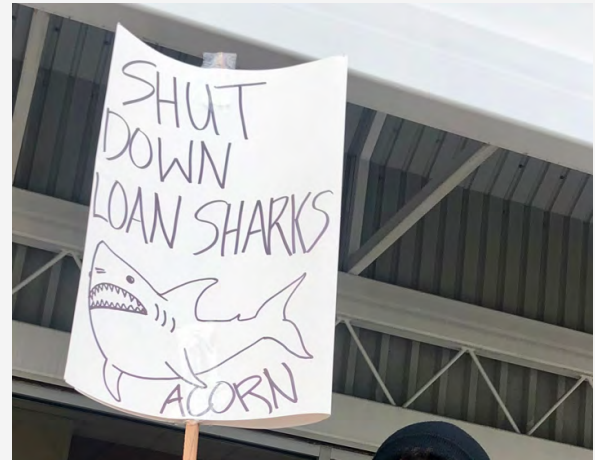 SHUT
DOWN
LOAN SHARKS
ACORN